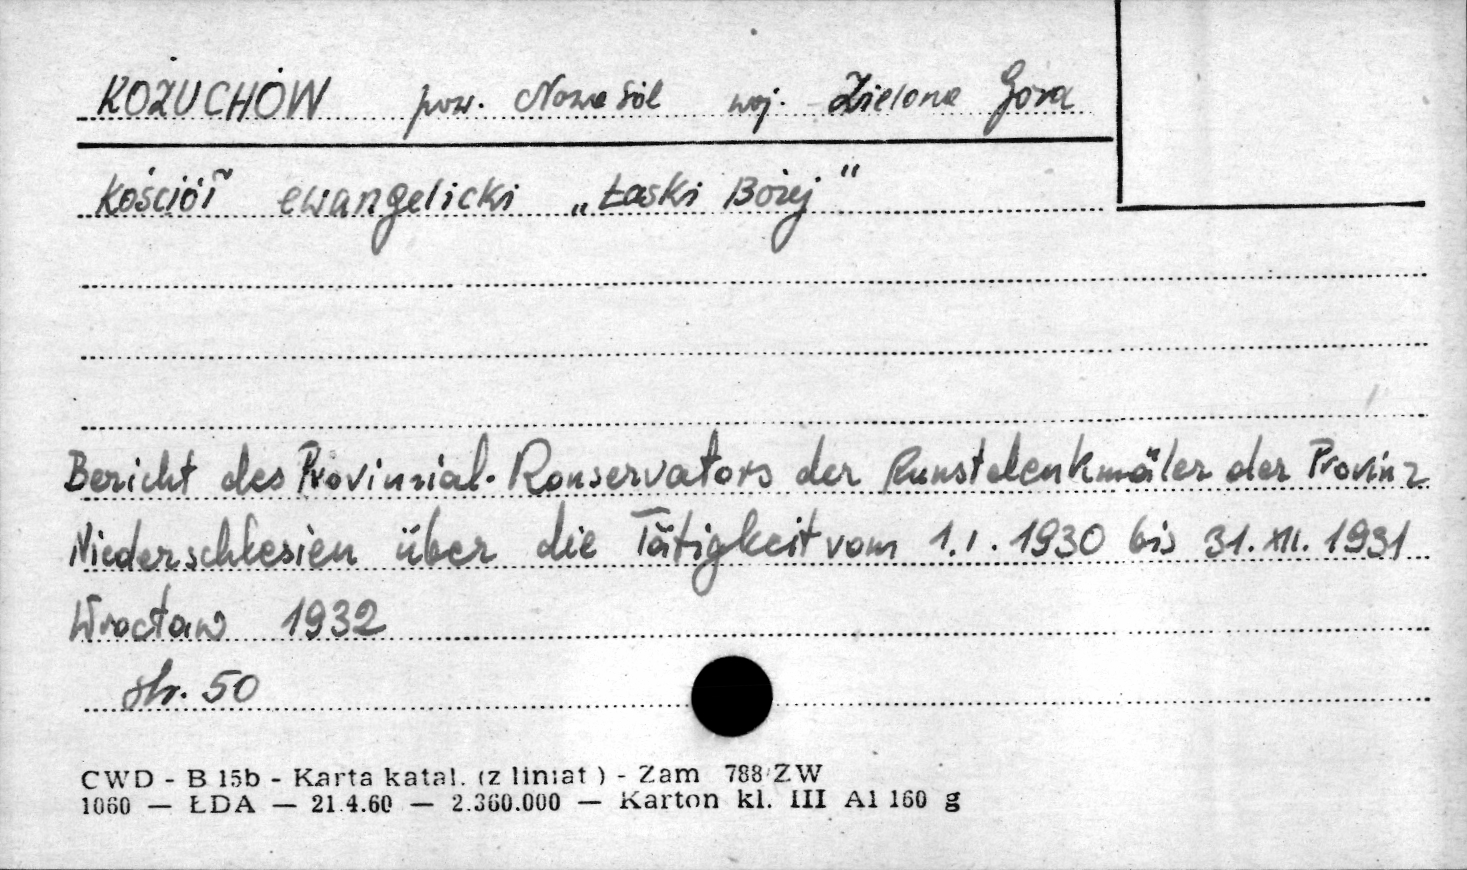 KOŻUCHÓW pow. Nowa Sól woj. Zielona Góra
Kościół ewangelicki „Łaski Bożej"
Bericht des Provinzial-Konservators der Kunstdenkmäler der Provinz
Niederschlesien über die Tätigkeit vom 1.I.1930 bis 31.XII.1931
Wrocław 1932
str. 50
CWD - B 15b - Karta katal. (z liniat) - Zam 788/ZW
1060 — ŁDA — 21.4.60 — 2.360.000 — Karton kl. III A1 160 g